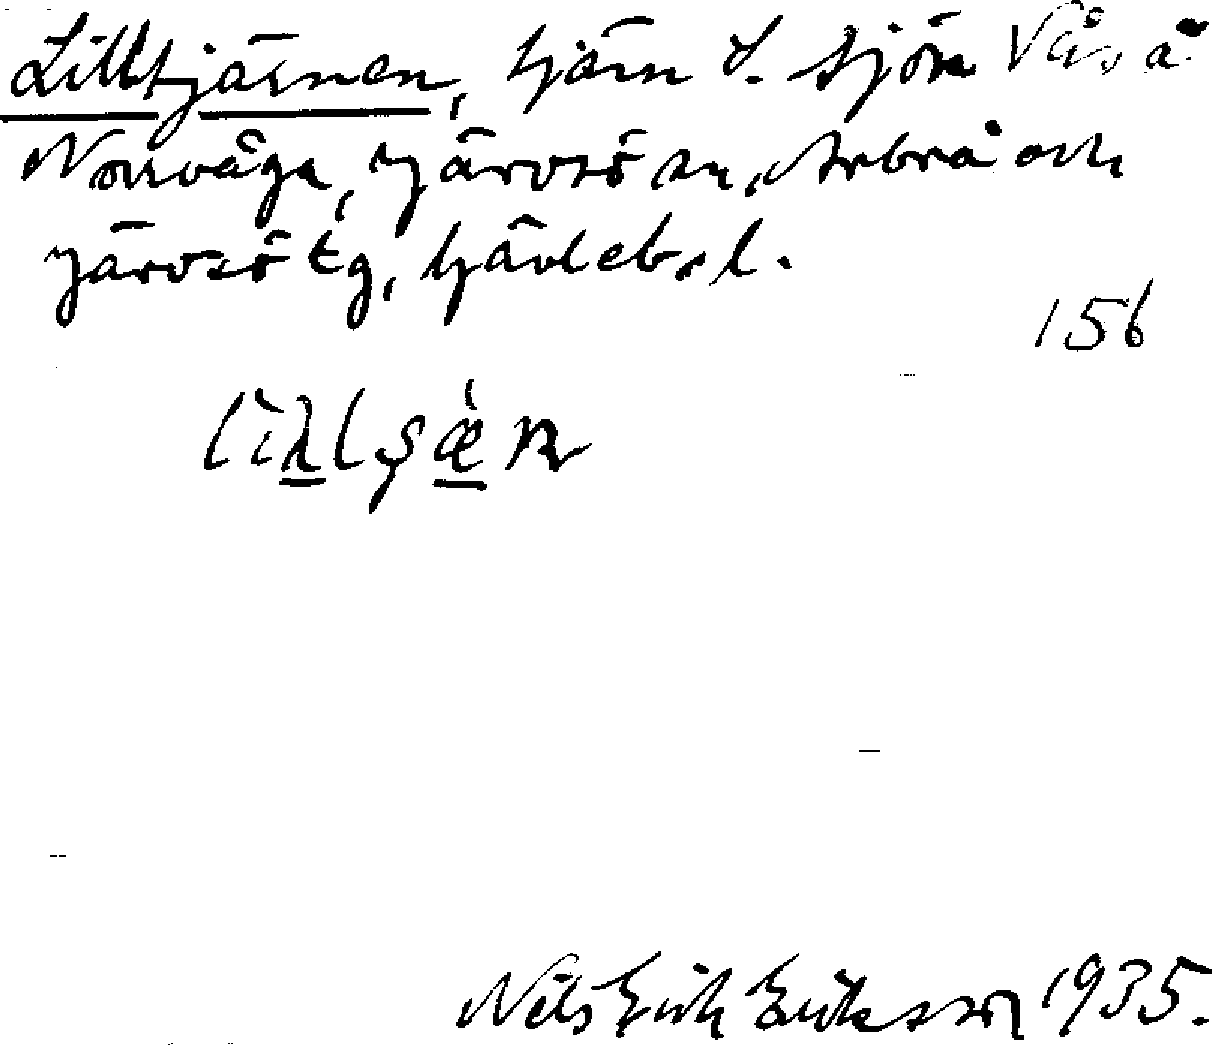 Lilltjärnen, tjärn S. sjön Våså
Norrvåga, Järvsö sn, Arbrå och
Järvsö tg, Gävleb. l.
156
Nils Erik Eriksson 1935.